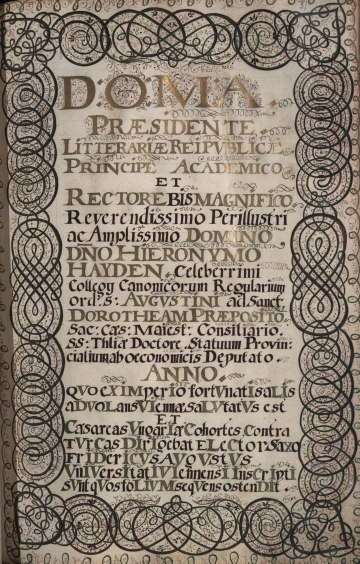 D:O:M:A.
PRÆSIDENTE
LITTERARIÆ REIPUBLICÆ
PRINCIPE ACADEMICO
ET
RECTORE BIS MAGNIFICO
Reverendissimo Perillustri
ac Amplissimo DOMINO
DÑO HIERONYMO
HAYDEN, Celeberrimi
Collegy Canonicorum Regularium
ord:s: AUGUSTINI ad Sanct.
DOROTHEAM PRÆPOSITO
Sac: Cæs: Maiest: Consiliario.
SS: Thliæ Doctore, Statuum Provin-
cialium ab oeconomicis Deputato.
ANNO
QUo eX IMperIo fortVnatIs aLIs
aDVoLans VIennæ saLVtatVs est
ET
Cæsareas VngarIæ Cohortes Contra
TVrCas DIrIgebat ELeCtor Saxo
FrIDerICVs AVgVstVs
VnIVersItatI VIennensI InsCrIptI
sVnt qVos foLIVM seqVens ostenDIt.